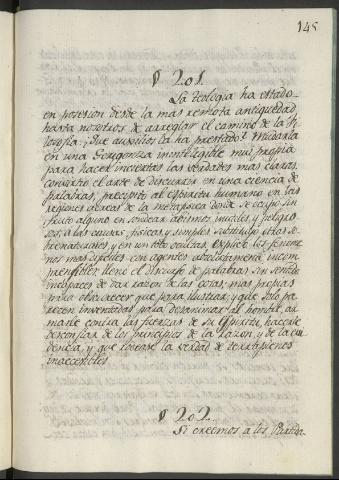 145
§ 201.
La Teologia ha estado
en posesion desde la mas remota antiguedad
hasta nosotros de arreglar el camino de la Fi
losofia: ¿Que auxilios la ha prestado? Mudarla
en una Gerigonza inintelegible muy propia
para hacer inciertas las verdades mas claras.
convirtió el arte de discurrir en una ciencia de
palabras, precipitó al Espiritu humano en las
regiones aereas de la metafisica donde se ocupó sin
fruto alguno en sondear abismos inutiles, y peligro
sos, a las causas fisicas, y simples substituyó otras so
brenaturales, y en un todo ocultas, explicó los fenome
nos mas dificiles con agentes absolutamente incom
prensibles; llenó el discurso de palabras sin sentido
incapaces de dar razon de las cosas, mas propias
para obscurecer que para ilustrar, y que solo pa
recen inventadas para desanimar al hombre, ar
marle contra las fuerzas de su Espiritu, hacerle
desconfiar de los principios de la razon, y de la evi
dencia, y que rodease la verdad de terraplenes
inaccecibles
§ 202.
Si creemos a los